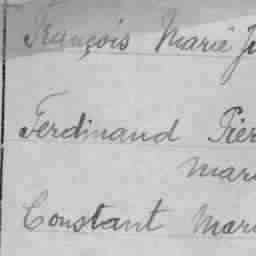 François Marie Je
Ferdinand Pier
Mari
Constant Mari